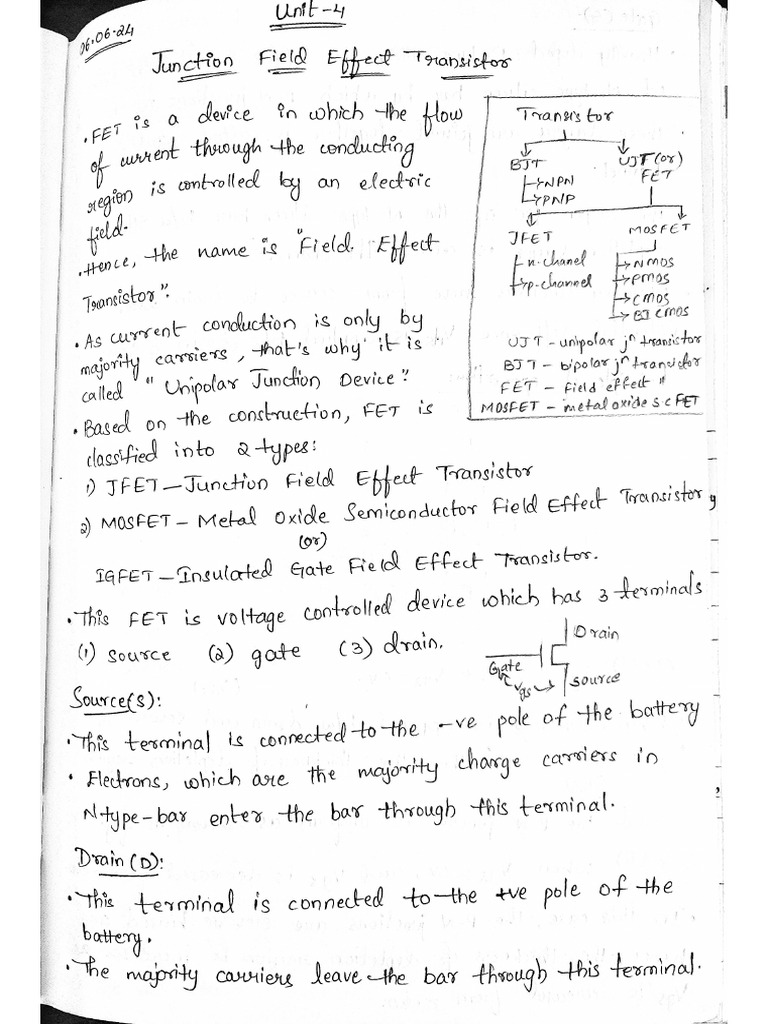 Unit-4
06.06.24
Junction Field Effect Transistor
• FET is a device in which the flow
of current through the conducting
region is controlled by an electric
field.
• Hence, the name is "Field Effect
Transistor".
• As current conduction is only by
majority carriers, that's why it is
called "Unipolar Junction Device".
• Based on the construction, FET is
classified into 2 types:
Transistor
BJT UJT (or)
FET
NPN
PNP
JFET MOSFET
n-chanel
p-channel
NMOS
PMOS
CMOS
BJCMOS
UJT - unipolar jn transistor
BJT - bipolar jn transistor
FET - field effect "
MOSFET - metal oxide s.c FET
1) JFET - Junction Field Effect Transistor
2) MOSFET - Metal Oxide Semiconductor Field Effect Transistor
(or)
IGFET - Insulated Gate Field Effect Transistor.
• This FET is voltage controlled device which has 3 terminals
(1) source (2) gate (3) drain.
Drain
Gate
Vgs
source
Source(S):
• This terminal is connected to the -ve pole of the battery
• Electrons, which are the majority charge carriers in
N-type-bar enter the bar through this terminal.
Drain (D):
• This terminal is connected to the +ve pole of the
battery.
• The majority carriers leave the bar through this terminal.